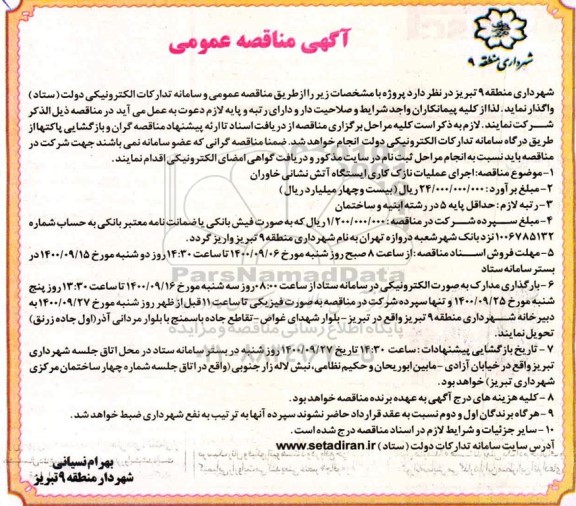 آگهی مناقصه عمومی
شهرداری منطقه ۹
شهرداری منطقه ۹ تبریز در نظر دارد پروژه با مشخصات زیر را از طریق مناقصه عمومی و سامانه تدارکات الکترونیکی دولت (ستاد)
واگذار نماید. لذا از کلیه پیمانکاران واجد شرایط و صلاحیت دار و دارای رتبه و پایه لازم دعوت به عمل می آید در مناقصه ذیل الذکر
شرکت نمایند. لازم به ذکر است کلیه مراحل برگزاری مناقصه از دریافت اسناد تا ارئه پیشنهاد مناقصه گران و بازگشایی پاکتها از
طریق درگاه سامانه تدارکات الکترونیکی دولت انجام خواهد شد. ضمنا مناقصه گرانی که عضو سامانه نمی باشند جهت شرکت در
مناقصه باید نسبت به انجام مراحل ثبت نام در سایت مذکور و دریافت گواهی امضای الکترونیکی اقدام نمایند.
۱-موضوع مناقصه: اجرای عملیات نازک کاری ایستگاه آتش نشانی خاوران
۲-مبلغ برآورد: ۲۴/۰۰۰/۰۰۰/۰۰۰ ریال (بیست وچهار میلیارد ریال)
۳- رتبه لازم: حداقل پایه ۵ در رشته ابنیه و ساختمان
۴-مبلغ سپرده شرکت در مناقصه: ۱/۲۰۰/۰۰۰/۰۰۰ ریال که به صورت فیش بانکی یا ضمانت نامه معتبر بانکی به حساب شماره
۱۰۰۶۷۸۵۱۳۲ نزد بانک شهر شعبه دروازه تهران به نام شهرداری منطقه ۹ تبریز واریز گردد.
۵-مهلت فروش اسناد مناقصه: از ساعت ۸ صبح روز شنبه مورخ ۱۴۰۰/۰۹/۰۶ تا ساعت ۱۴:۳۰ روز دو شنبه مورخ ۱۴۰۰/۰۹/۱۵ در
بستر سامانه ستاد
۶-بارگذاری مدارک به صورت الکترونیکی در سامانه ستاد از ساعت ۰۸:۰۰ روز سه شنبه مورخ ۱۴۰۰/۰۹/۱۶ تا ساعت ۱۳:۳۰ روز پنج
شنبه مورخ ۱۴۰۰/۰۹/۲۵ و تنها سپرده شرکت در مناقصه به صورت فیزیکی تا ساعت ۱۱ قبل از ظهر روز شنبه مورخ ۱۴۰۰/۰۹/۲۷ به
دبیرخانه شهرداری منطقه ۹ تبریز واقع در تبریز- بلوار شهدای غواص- تقاطع جاده باسمنج با بلوار مردانی آذر (اول جاده زرنق)
تحویل نمایند.
۷- تاریخ بازگشایی پیشنهادات: ساعت ۱۴:۳۰ تاریخ ۱۴۰۰/۰۹/۲۷ روز شنبه در بستر سامانه ستاد در محل اتاق جلسه شهرداری
تبریز واقع در خیابان آزادی - مابین ابوریحان و حکیم نظامی، نبش لاله زار جنوبی (واقع در اتاق جلسه شماره چهار ساختمان مرکزی
شهرداری تبریز) خواهد بود.
۸- کلیه هزینه های درج آگهی به عهده برنده مناقصه خواهد بود.
۹- هرگاه برندگان اول و دوم نسبت به عقد قرارداد حاضر نشوند سپرده آنها به ترتیب به نفع شهرداری ضبط خواهد شد.
۱۰-سایر جزئیات و شرایط لازم در اسناد مناقصه درج شده است.
آدرس سایت سامانه تدارکات دولت (ستاد) www.setadiran.ir
بهرام نسیانی
شهردار منطقه ۹ تبریز
ParsNamadData
پایگاه اطلاع رسانی مناقصه و مزایده